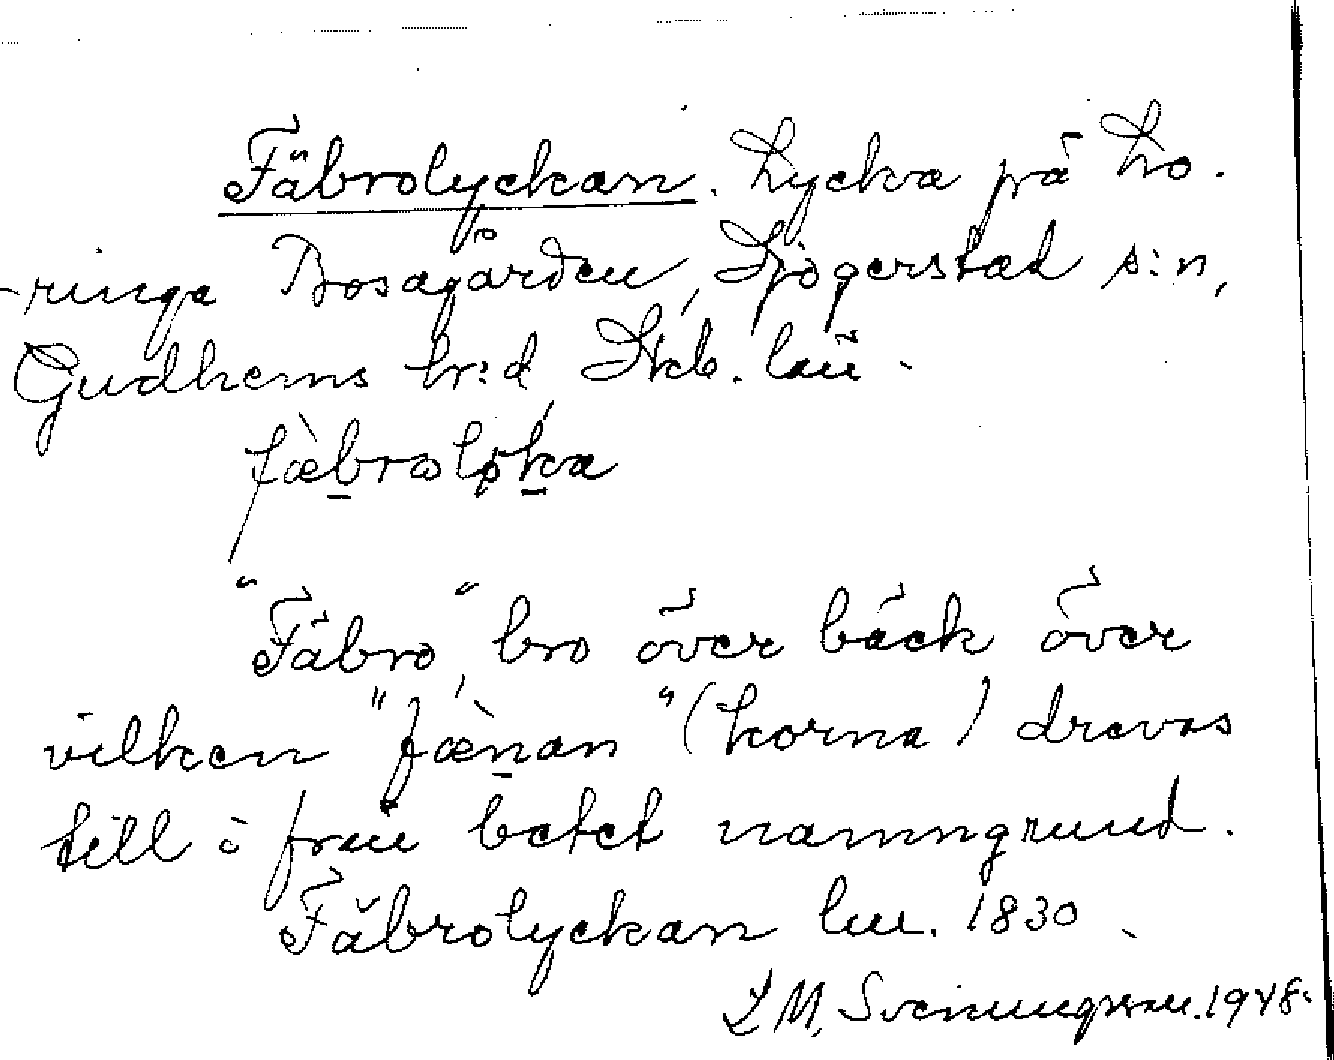 Fäbrolyckan. Lycka på Lo-
ringa Bosagården, Sjögerstad s:n,
Gudhems hr:d, Skb. län.
fæ̀brωløka
"Fäbro", bro över bäck över
vilken "fæ̀nan" (korna) drevos
till o från betet namngrund.
Fäbrolyckan lm. 1830.
L M, Sveinungsson. 1948.